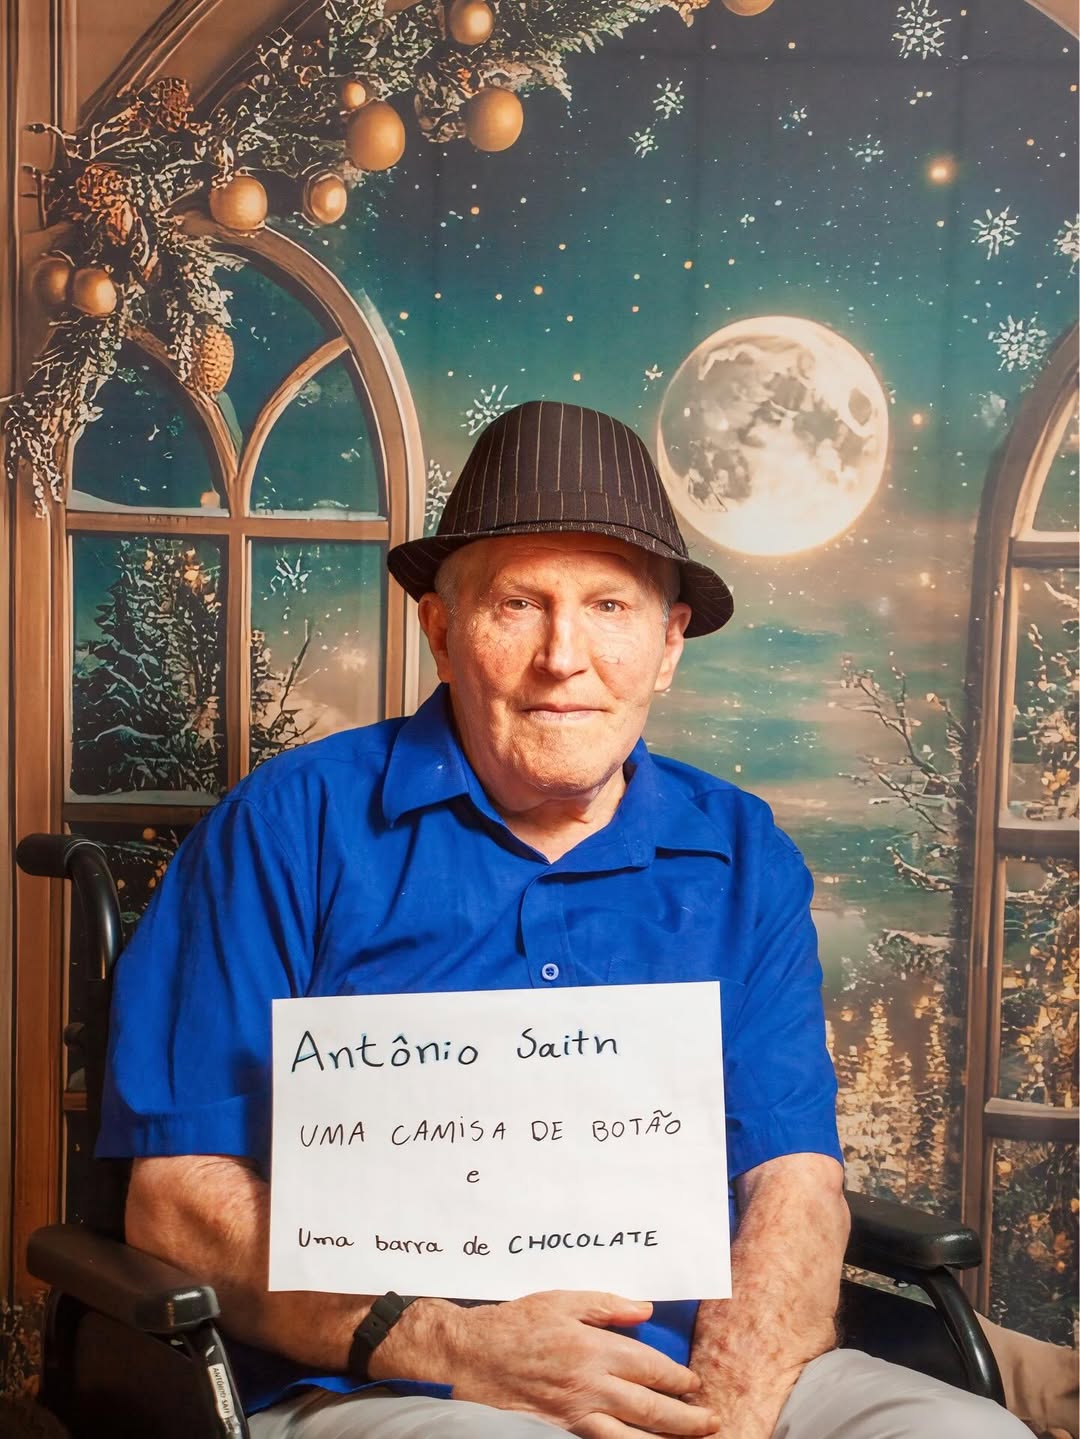 Antônio Saitn
UMA CAMISA DE BOTÃO
e
Uma barra de CHOCOLATE
ANTÔNIO SAIT